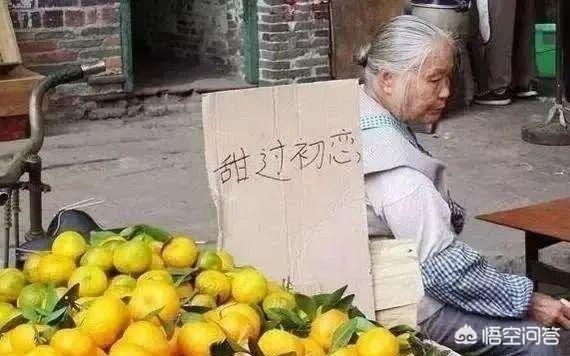 甜过初恋
悟空问答